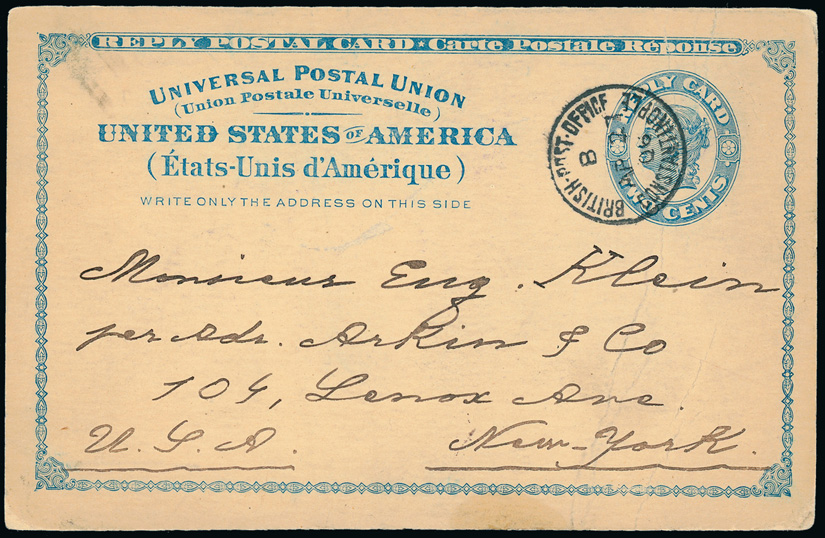 REPLY POSTAL CARD ★ Carte Postale Réponse
UNIVERSAL POSTAL UNION
(Union Postale Universelle)
UNITED STATES OF AMERICA
(États-Unis d'Amérique)
WRITE ONLY THE ADDRESS ON THIS SIDE
REPLY CARD
TWO CENTS
BRITISH-POST-OFFICE
CONSTANTINOPLE
B
AP 21
06
Monsieur Eug. Klein
per Adr. Arkin & Co
104, Lenox Ave.
U.S.A. New-York.